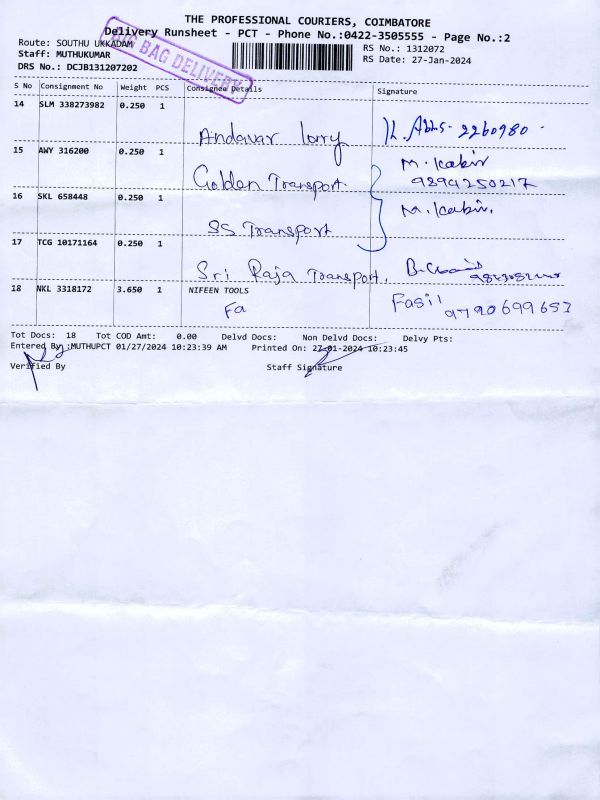 THE PROFESSIONAL COURIERS, COIMBATORE
Delivery Runsheet - PCT - Phone No.:0422-3505555 - Page No.:2
Route: SOUTHU UKKADAM
RS No.: 1312072
Staff: MUTHUKUMAR
RS Date: 27-Jan-2024
DRS No.: DCJB131207202
BAG DELIVERY
S No Consignment No Weight PCS Consignee Details Signature
14 SLM 338273982 0.250 1
Andavar lorry 2260980
15 AWY 316200 0.250 1
Golden Transport. M. Kabir
9894250217
16 SKL 658448 0.250 1
SS Transport M. Kabir.
17 TCG 10171164 0.250 1
Sri Raja Transport.
18 NKL 3318172 3.650 1 NIFEEN TOOLS
Fa Fasil 9790699653
Tot Docs: 18 Tot COD Amt: 0.00 Delvd Docs: Non Delvd Docs: Delvy Pts:
Entered By :MUTHUPCT 01/27/2024 10:23:39 AM Printed On: 27-01-2024 10:23:45
Verified By Staff Signature